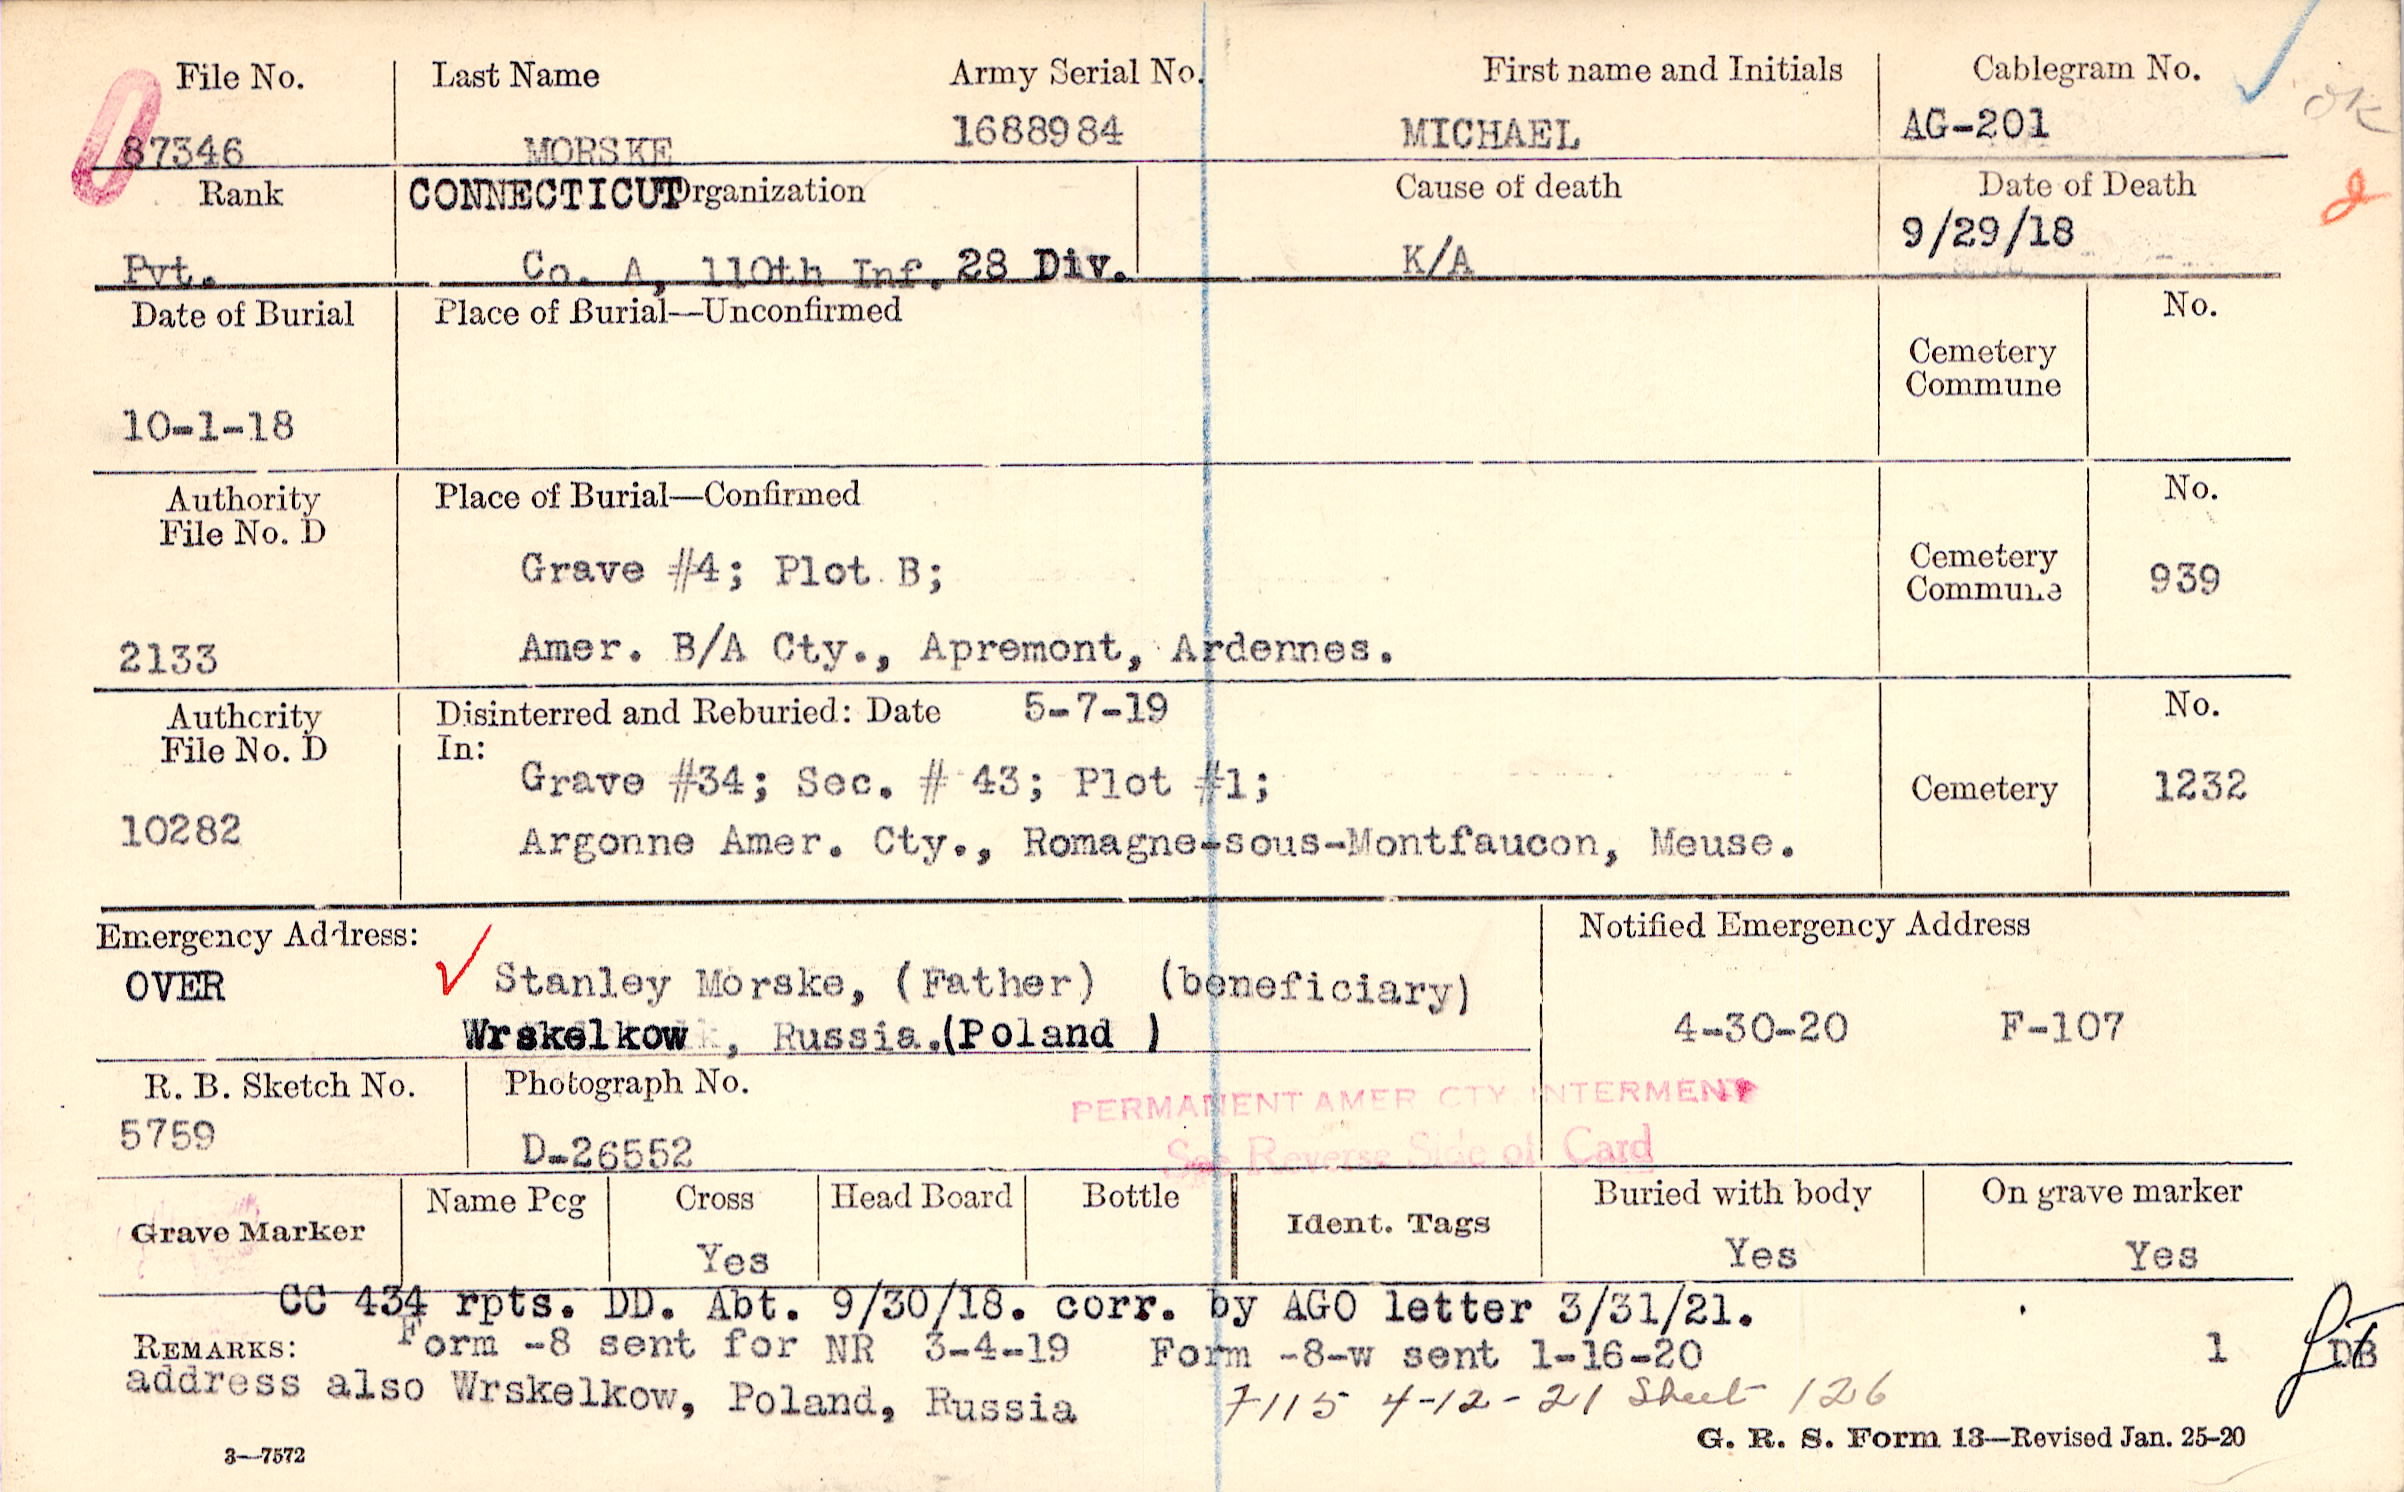 File No. Last Name Army Serial No. First name and Initials Cablegram No.
OK
87346 MORSKE 1688984 MICHAEL AG-201
Rank CONNECTICUT Organization Cause of death Date of Death
Pvt. Co. A, 110th Inf. 28 Div. K/A 9/29/18
Date of Burial Place of Burial—Unconfirmed No.
Cemetery
Commune
10-1-18
Authority Place of Burial—Confirmed No.
File No. D
Grave #4; Plot B; Cemetery
Commune 939
2133 Amer. B/A Cty., Apremont, Ardennes.
Authority Disinterred and Reburied: Date 5-7-19 No.
File No. D In:
Grave #34; Sec. # 43; Plot #1; Cemetery 1232
10282 Argonne Amer. Cty., Romagne-sous-Montfaucon, Meuse.
Emergency Address: Notified Emergency Address
OVER Stanley Morske, (Father) (beneficiary)
Wrskelkow, Russia.(Poland ) 4-30-20 F-107
R. B. Sketch No. Photograph No.
PERMANENT AMER CTY. INTERMENT
5759 D-26552 See Reverse Side of Card
Grave Marker Name Peg Cross Head Board Bottle Ident. Tags Buried with body On grave marker
Yes Yes Yes
CC 434 rpts. DD. Abt. 9/30/18. corr. by AGO letter 3/31/21.
REMARKS: Form -8 sent for NR 3-4-19 Form -8-w sent 1-16-20 1 DB
address also Wrskelkow, Poland, Russia 7115 4-12-21 Sheet 126
3—7572 G. R. S. Form 13—Revised Jan. 25-20